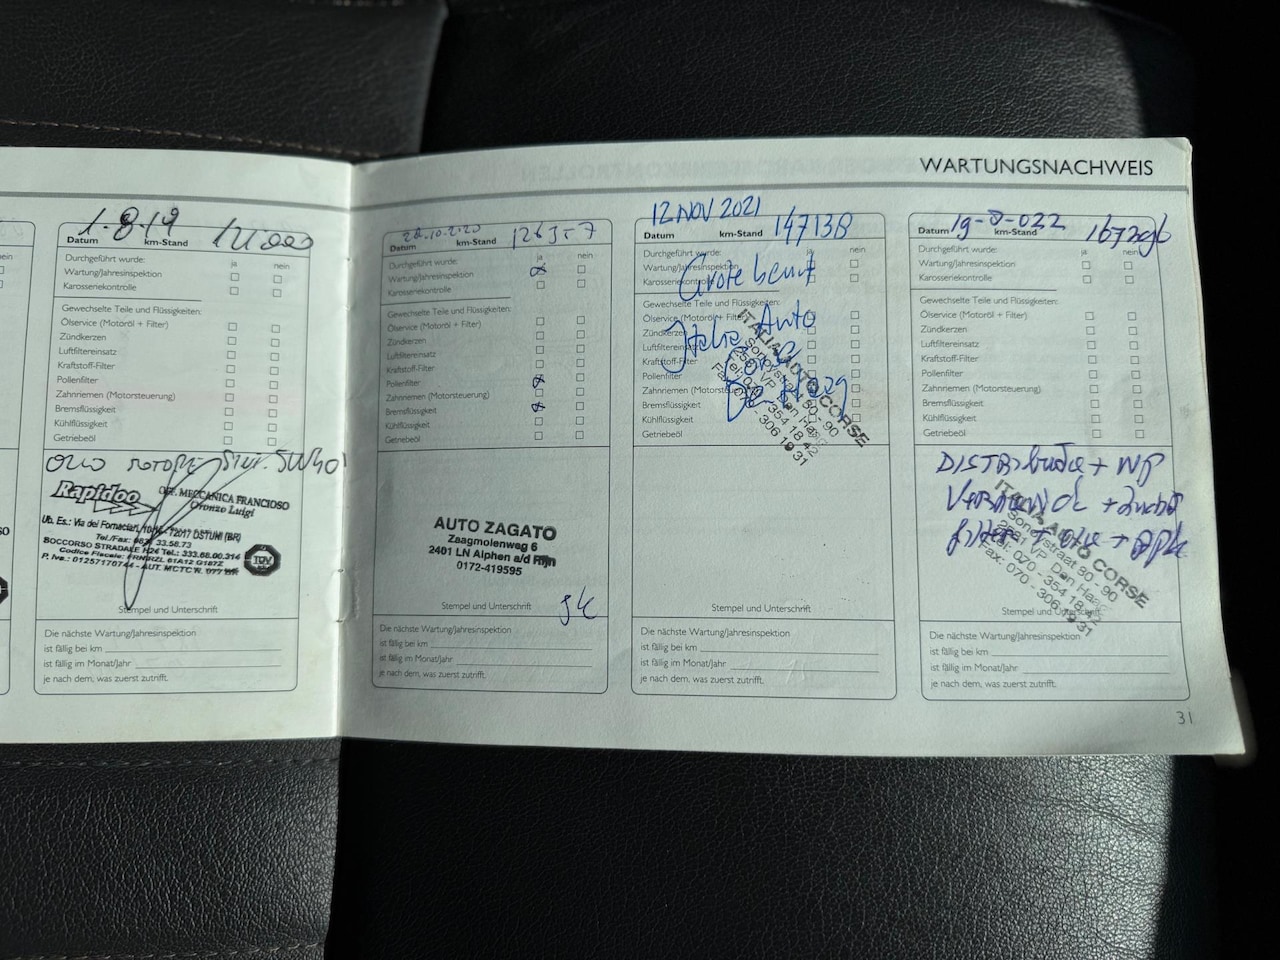 WARTUNGSNACHWEIS
1-8-19
Datum km-Stand
Durchgeführt wurde: ja nein
Wartung/Jahresinspektion
Karosseriekontrolle
Gewechselte Teile und Flüssigkeiten:
Ölservice (Motoröl + Filter)
Zündkerzen
Luftfiltereinsatz
Kraftstoff-Filter
Pollenfilter
Zahnriemen (Motorsteuerung)
Bremsflüssigkeit
Kühlflüssigkeit
Getriebeöl
OLIO MOTORE 5W40
Rapidoo
OFF. MECCANICA FRANCIOSO
Oronzo Luigi
Ub. Es.: Via dei Fornaciari, 72017 OSTUNI (BR)
Tel./Fax: 33.58.73
SOCCORSO STRADALE H24 Tel.: 333.68.00.314
Codice Fiscale: FRNRZL 61A12 G187Z
P. Iva.: 01257170744 - AUT. MCTC N.
TÜV
Stempel und Unterschrift
Die nächste Wartung/Jahresinspektion
ist fällig bei km
ist fällig im Monat/Jahr
je nach dem, was zuerst zutrifft.
28.10.2020 126357
Datum km-Stand
Durchgeführt wurde: ja nein
Wartung/Jahresinspektion
Karosseriekontrolle
Gewechselte Teile und Flüssigkeiten:
Ölservice (Motoröl + Filter)
Zündkerzen
Luftfiltereinsatz
Kraftstoff-Filter
Pollenfilter
Zahnriemen (Motorsteuerung)
Bremsflüssigkeit
Kühlflüssigkeit
Getriebeöl
AUTO ZAGATO
Zaagmolenweg 6
2401 LN Alphen a/d Rijn
0172-419595
Stempel und Unterschrift
Die nächste Wartung/Jahresinspektion
ist fällig bei km
ist fällig im Monat/Jahr
je nach dem, was zuerst zutrifft.
12 NOV 2021
Datum km-Stand 147138
Durchgeführt wurde: ja nein
Wartung/Jahresinspektion
Karosseriekontrolle
Grote beurt
Gewechselte Teile und Flüssigkeiten:
Ölservice (Motoröl + Filter)
Zündkerzen
Luftfiltereinsatz
Kraftstoff-Filter
Pollenfilter
Zahnriemen (Motorsteuerung)
Bremsflüssigkeit
Kühlflüssigkeit
Getriebeöl
Italia Auto
Corse
Den Haag
ITALIA AUTO CORSE
Sonoystraat 80 - 90
VP Den Haag
Tel: 070 - 354 18 42
Fax: 070 - 306 19 31
Stempel und Unterschrift
Die nächste Wartung/Jahresinspektion
ist fällig bei km
ist fällig im Monat/Jahr
je nach dem, was zuerst zutrifft.
Datum 19-8-022 km-Stand
Durchgeführt wurde: ja nein
Wartung/Jahresinspektion
Karosseriekontrolle
Gewechselte Teile und Flüssigkeiten:
Ölservice (Motoröl + Filter)
Zündkerzen
Luftfiltereinsatz
Kraftstoff-Filter
Pollenfilter
Zahnriemen (Motorsteuerung)
Bremsflüssigkeit
Kühlflüssigkeit
Getriebeöl
DISTRibutie + WP
filter + olie + apk
ITALIA AUTO CORSE
Sonoystraat 80 - 90
VP Den Haag
Tel: 070 - 354 18 42
Fax: 070 - 306 19 31
Stempel und Unterschrift
Die nächste Wartung/Jahresinspektion
ist fällig bei km
ist fällig im Monat/Jahr
je nach dem, was zuerst zutrifft.
31